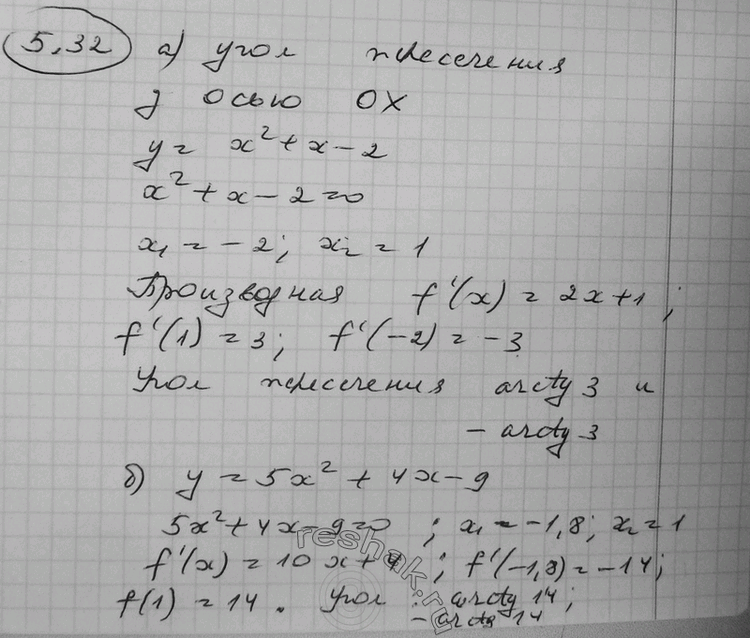 5.32 а) угол пересечения
с осью OX
y = x² + x - 2
x² + x - 2 = 0
x₁ = -2; x₂ = 1
Производная f'(x) = 2x+1;
f'(1) = 3; f'(-2) = -3
Угол пересечения arctg 3 и
- arctg 3
б) y = 5x² + 4x - 9
5x² + 4x - 9 = 0; x₁ = -1,8; x₂ = 1
f'(x) = 10x + 4; f'(-1,8) = -14;
f(1) = 14. Угол: arctg 14;
- arctg 14
reshak.ru